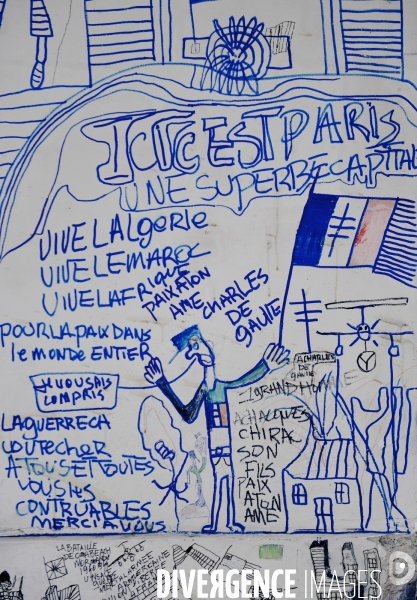 ICIC EST PARiS
UNE SUPERBE CAPITAL
VIVE L ALGERIE
VIVE LE MAROC
VIVE L AFRIQUE
PAIX A TON
AME CHARLES
DE
GAULE
POUR LA PAIX DANS
le MONDE ENTIER
JE VOUS AIS
COMPRIS
LA GUERRE CA
COUTE CHER
A TOUS ET TOUTES
VOUS LES
CONTRUABLES
MERCI A VOUS
A CHARLES
DE
GAULE
LE GRAND HOMME
A CHACQUES
CHIRAC
SON
FILS
PAIX
A TON
AME
LA BATAILLE
DIVERGENCE IMAGES